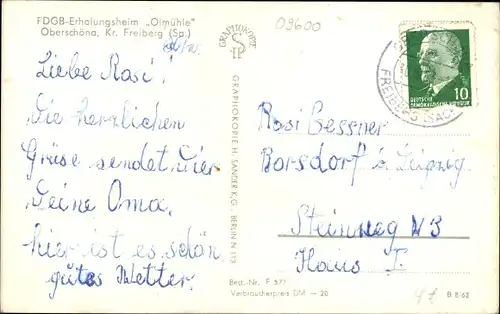 FDGB-Erholungsheim „Ölmühle"
Oberschöna, Kr. Freiberg (Sa.)
Liebe Rosi!
Die herzlichen
Grüse sendet Dier
Deine Oma.
hier ist es schön
gutes Wetter.
GRAPHOKOPIE
GRAPHOKOPIE H. SANDER K.G. BERLIN N 113
Best.-Nr. F 577
Verbraucherpreis DM —.20
09600
FREIBERG (SACHS)
10
DEUTSCHE
DEMOKRATISCHE REPUBLIK
Rosi Gessner
Borsdorf b. Leipzig
Steinweg
Haus I.
B 8/63